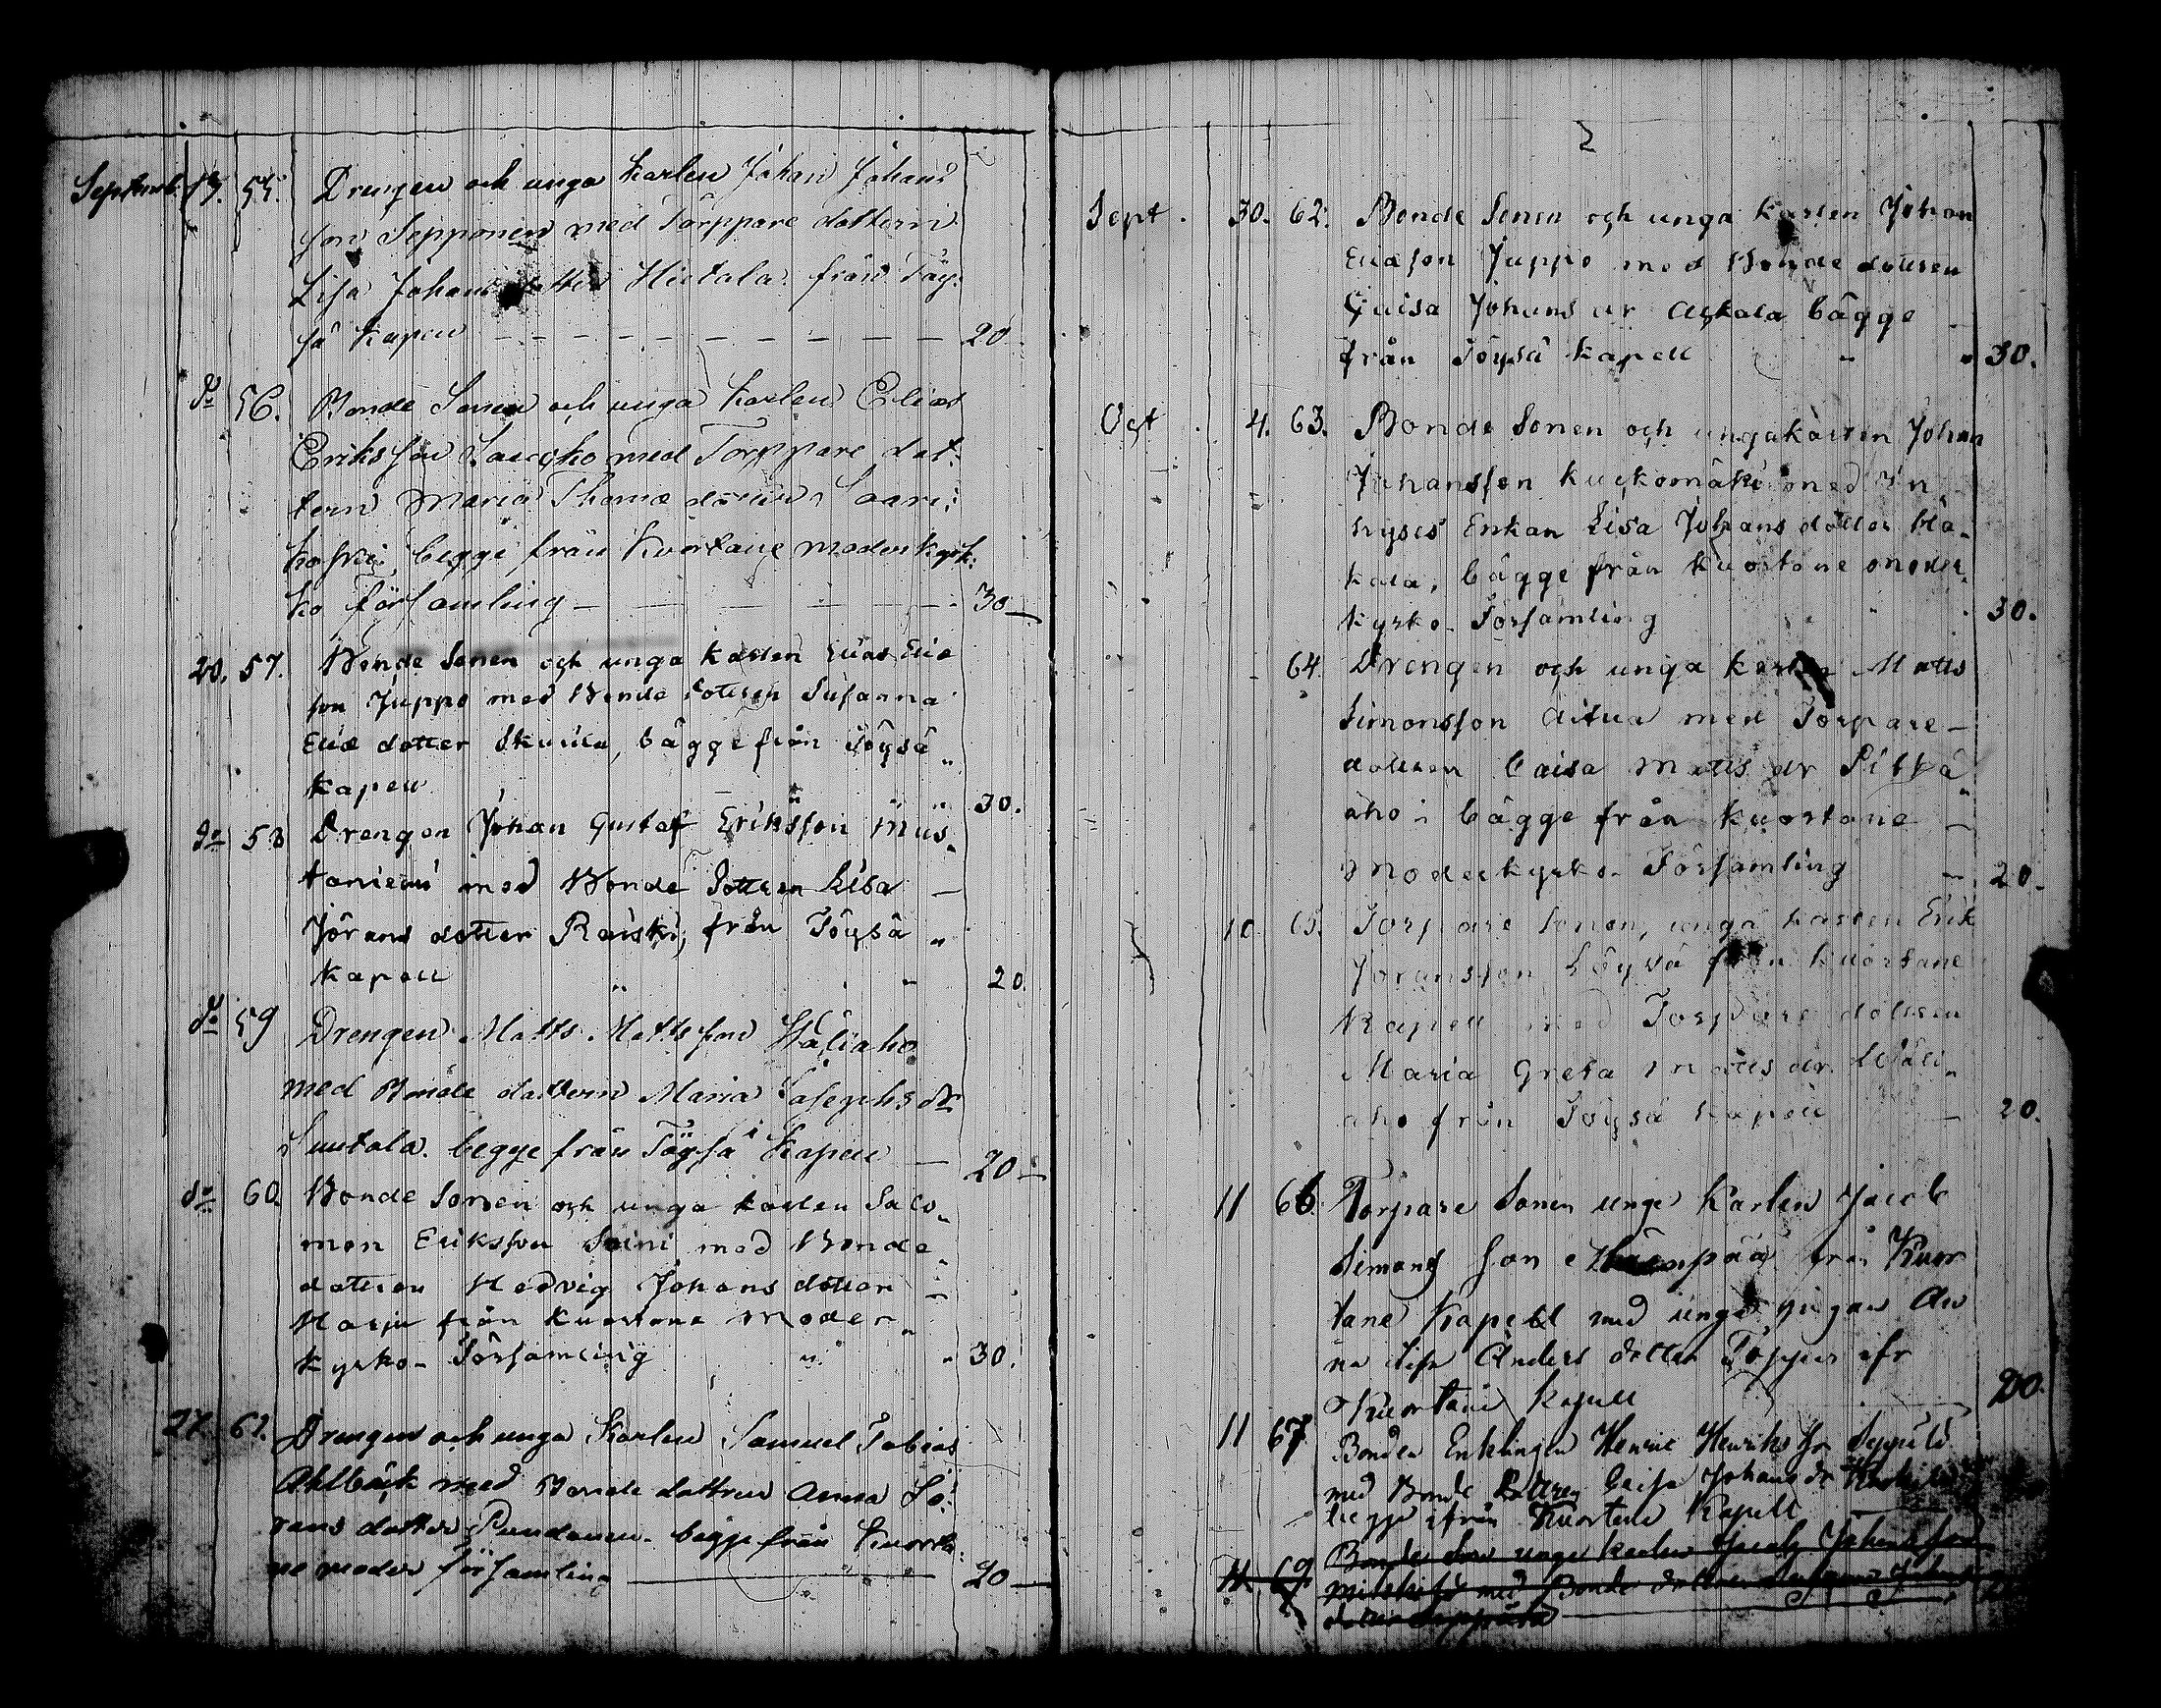 Septemb. 13. 55. Drengen och unga Karlen Johan Johans
son Sepponen med Torppare dottern
Lisa Johans dotter Hietala från Töy:
sä Kapell — — — 20
do 56. Bonde Sonen och unga Karlen Elias
Eriksson med Torppare dot:
tern Maria Thomæ dotter Saari:
koski, begge från Kuortane moderkyrk:
ko församling — — — 30
20. 57. Bonde Sonen och unga Karlen Elias Eliæ
son Juppo med Bonde dotteren Susanna
Eliæ dotter bägge från Töysä
Kapell 30.
do 58 Drengen Johan Gustaf Eriksson Mus
taniemi med Bonde dotteren Lisa —
Jörans dotter Raiski, från Töysä
Kapell 20.
do 59 Drengen Matts Mattsson Wäliaho
med Bonde dottern Maria Josephs dr
Suutala. begge från Töysä Kapell — 20 —
do 60. Bonde Sonen och unga Karlen Salo
mon Eriksson Soini med Bonde
dotteren Hedvig Johans dotter
Harju från Kuortane Moder
Kyrko- Församling 30.
27. 61. Drengen och unga Karlen Samuel Tobias
Ahlbäck med Bonde dottren Anna Jö:
rans dotter begge från Kuorta:
ne moder församling — 20 —
2
Sept. 30. 62. Bonde Sonen och unga Karlen Johan
Eliæson Juppo med Bonde dotteren
Caisa Johans dr Alkala bägge
från Töysä Kapell 30.
Oct. 4. 63. Bonde Sonen och unga karlen Johan
Johansson Kuckomäki med In
hyses Enkan Lisa Johans dotter
bägge från Kuortane moder
Kyrko- Församling 30.
64. Drengen och unga karlen Matts
Simonsson Aitua med Torpare —
dotteren Caisa Matts dr Pitkä
aho i bägge från Kuortane —
Moderkyrko- Församling — 20.
10 65. Torpare Sonen, unga karlen Erik
Joransson Löyvä från Kuortane
Kapell med Torpare dotteren
Maria Greta Matts dr Wäli
aho från Töysä Kapell — 20.
11 66. Torpare Sonen unge Karlen Jacob
Simons Son från Kuor
tane Kapell med unga pigan An
na Lisa Anders dotter ifr
Kuortane Kapell 20.
11 67 Bonden Enklingen Henric Henriks son Seppälä
med Bonde Dottren Caisa Johans dr
begge ifrån Kuortane Kapell
11 69 Bonde Son unge karlen Jacob Johans son
med Bonde dottren